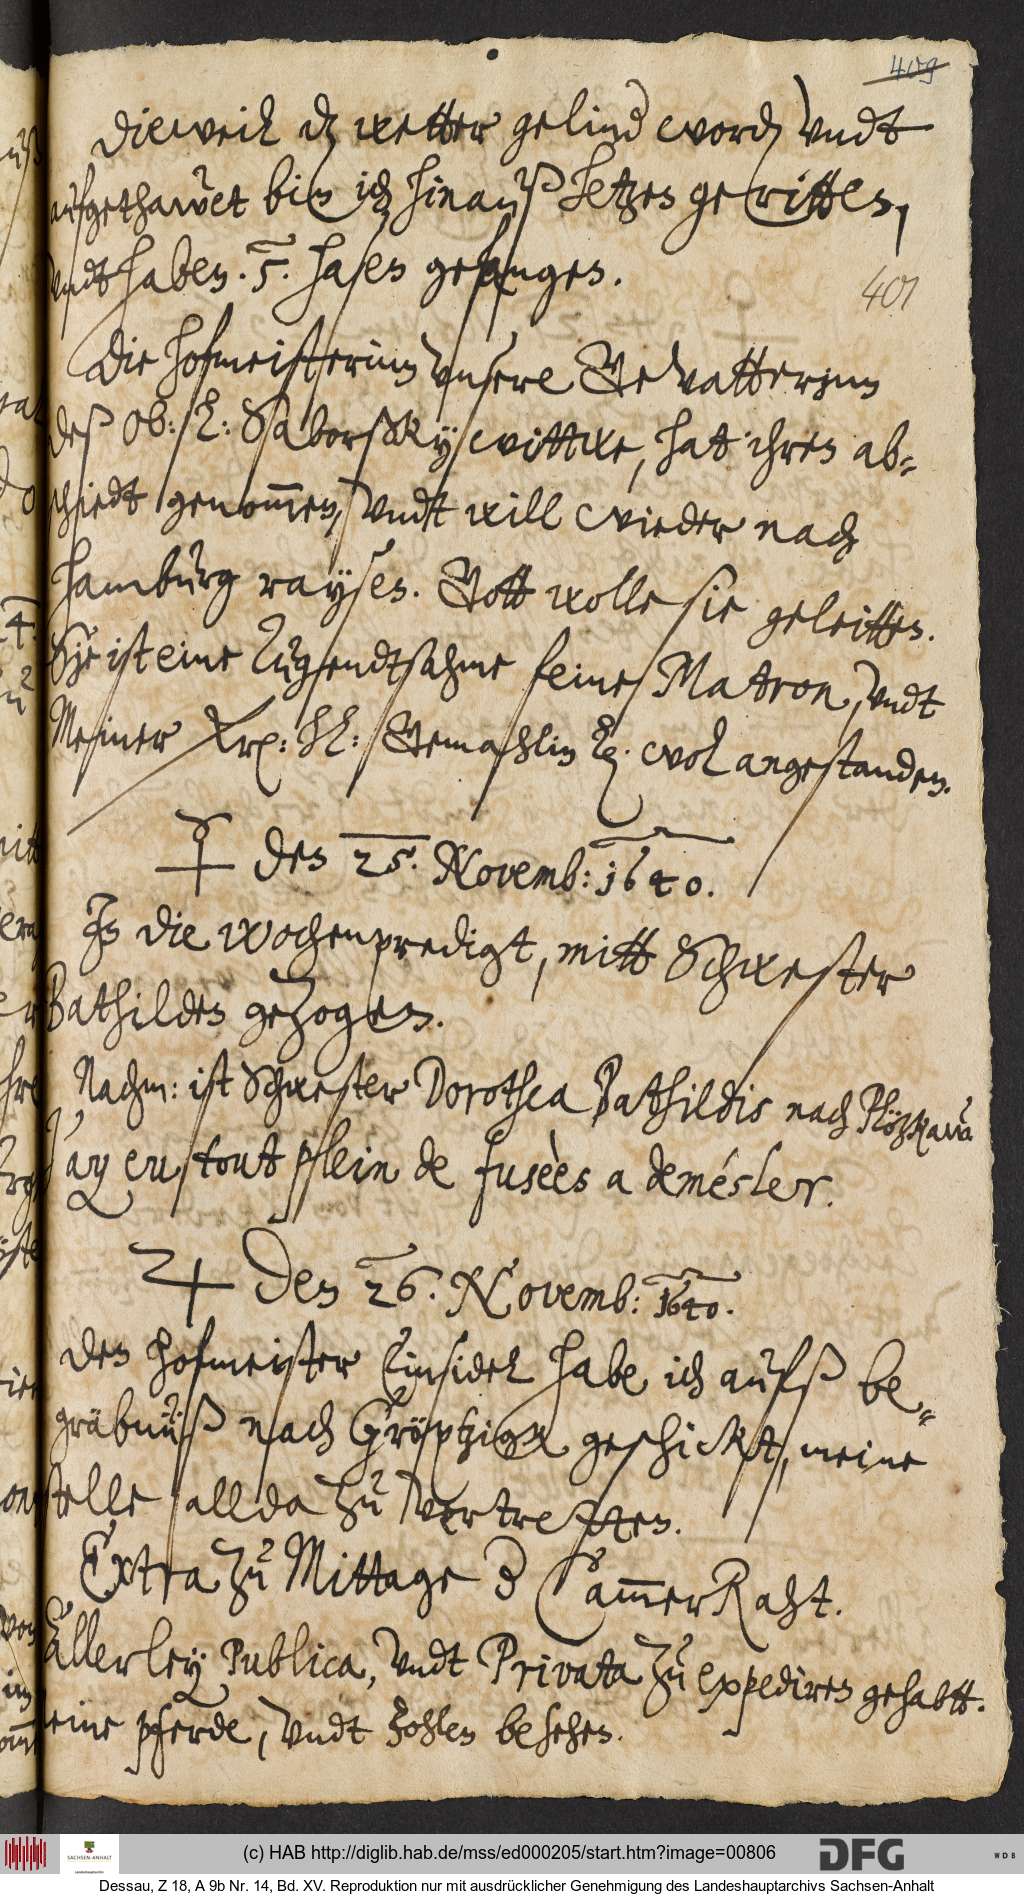 409
Dieweil dz wetter gelind worden vndt
aufgethawet bin ich hinauß hetzen geritten,
vndt haben .5. hasen gefangen.
401
Die hofmeisterinn vnsere Gevatterinn
deß Ob: L: Saborßky wittwe, hat ihren ab-
schiedt genommen, vndt will wieder nach
hamburg raysen. Gott wolle sie geleitten.
Sie ist eine Tugendtsahme feine Matron, vndt
Meiner herz: L: Gemahlin wol angestanden.
☿ den 25. Novemb: 1640.
In die wochenpredigt, mitt Schwester
Bathilden gezogen.
Nachm: ist Schwester Dorothea Bathildis nach Plötzkaw
J'ay eu tout plein de fusèes a demésler.
♃ Den 26. Novemb: 1640.
Den hofmeister Einsidel habe ich aufß be-
gräbnüß nach Gröptzigk geschickt, meine
stelle allda zu vertretten.
Extra zu Mittage der CammerRaht.
Allerley Publica, vndt Privata zu expediren gehabtt.
Meine pferde, vndt fohlen besehen.
(c) HAB http://diglib.hab.de/mss/ed000205/start.htm?image=00806
SACHSEN-ANHALT
DFG
WDB
Dessau, Z 18, A 9b Nr. 14, Bd. XV. Reproduktion nur mit ausdrücklicher Genehmigung des Landeshauptarchivs Sachsen-Anhalt